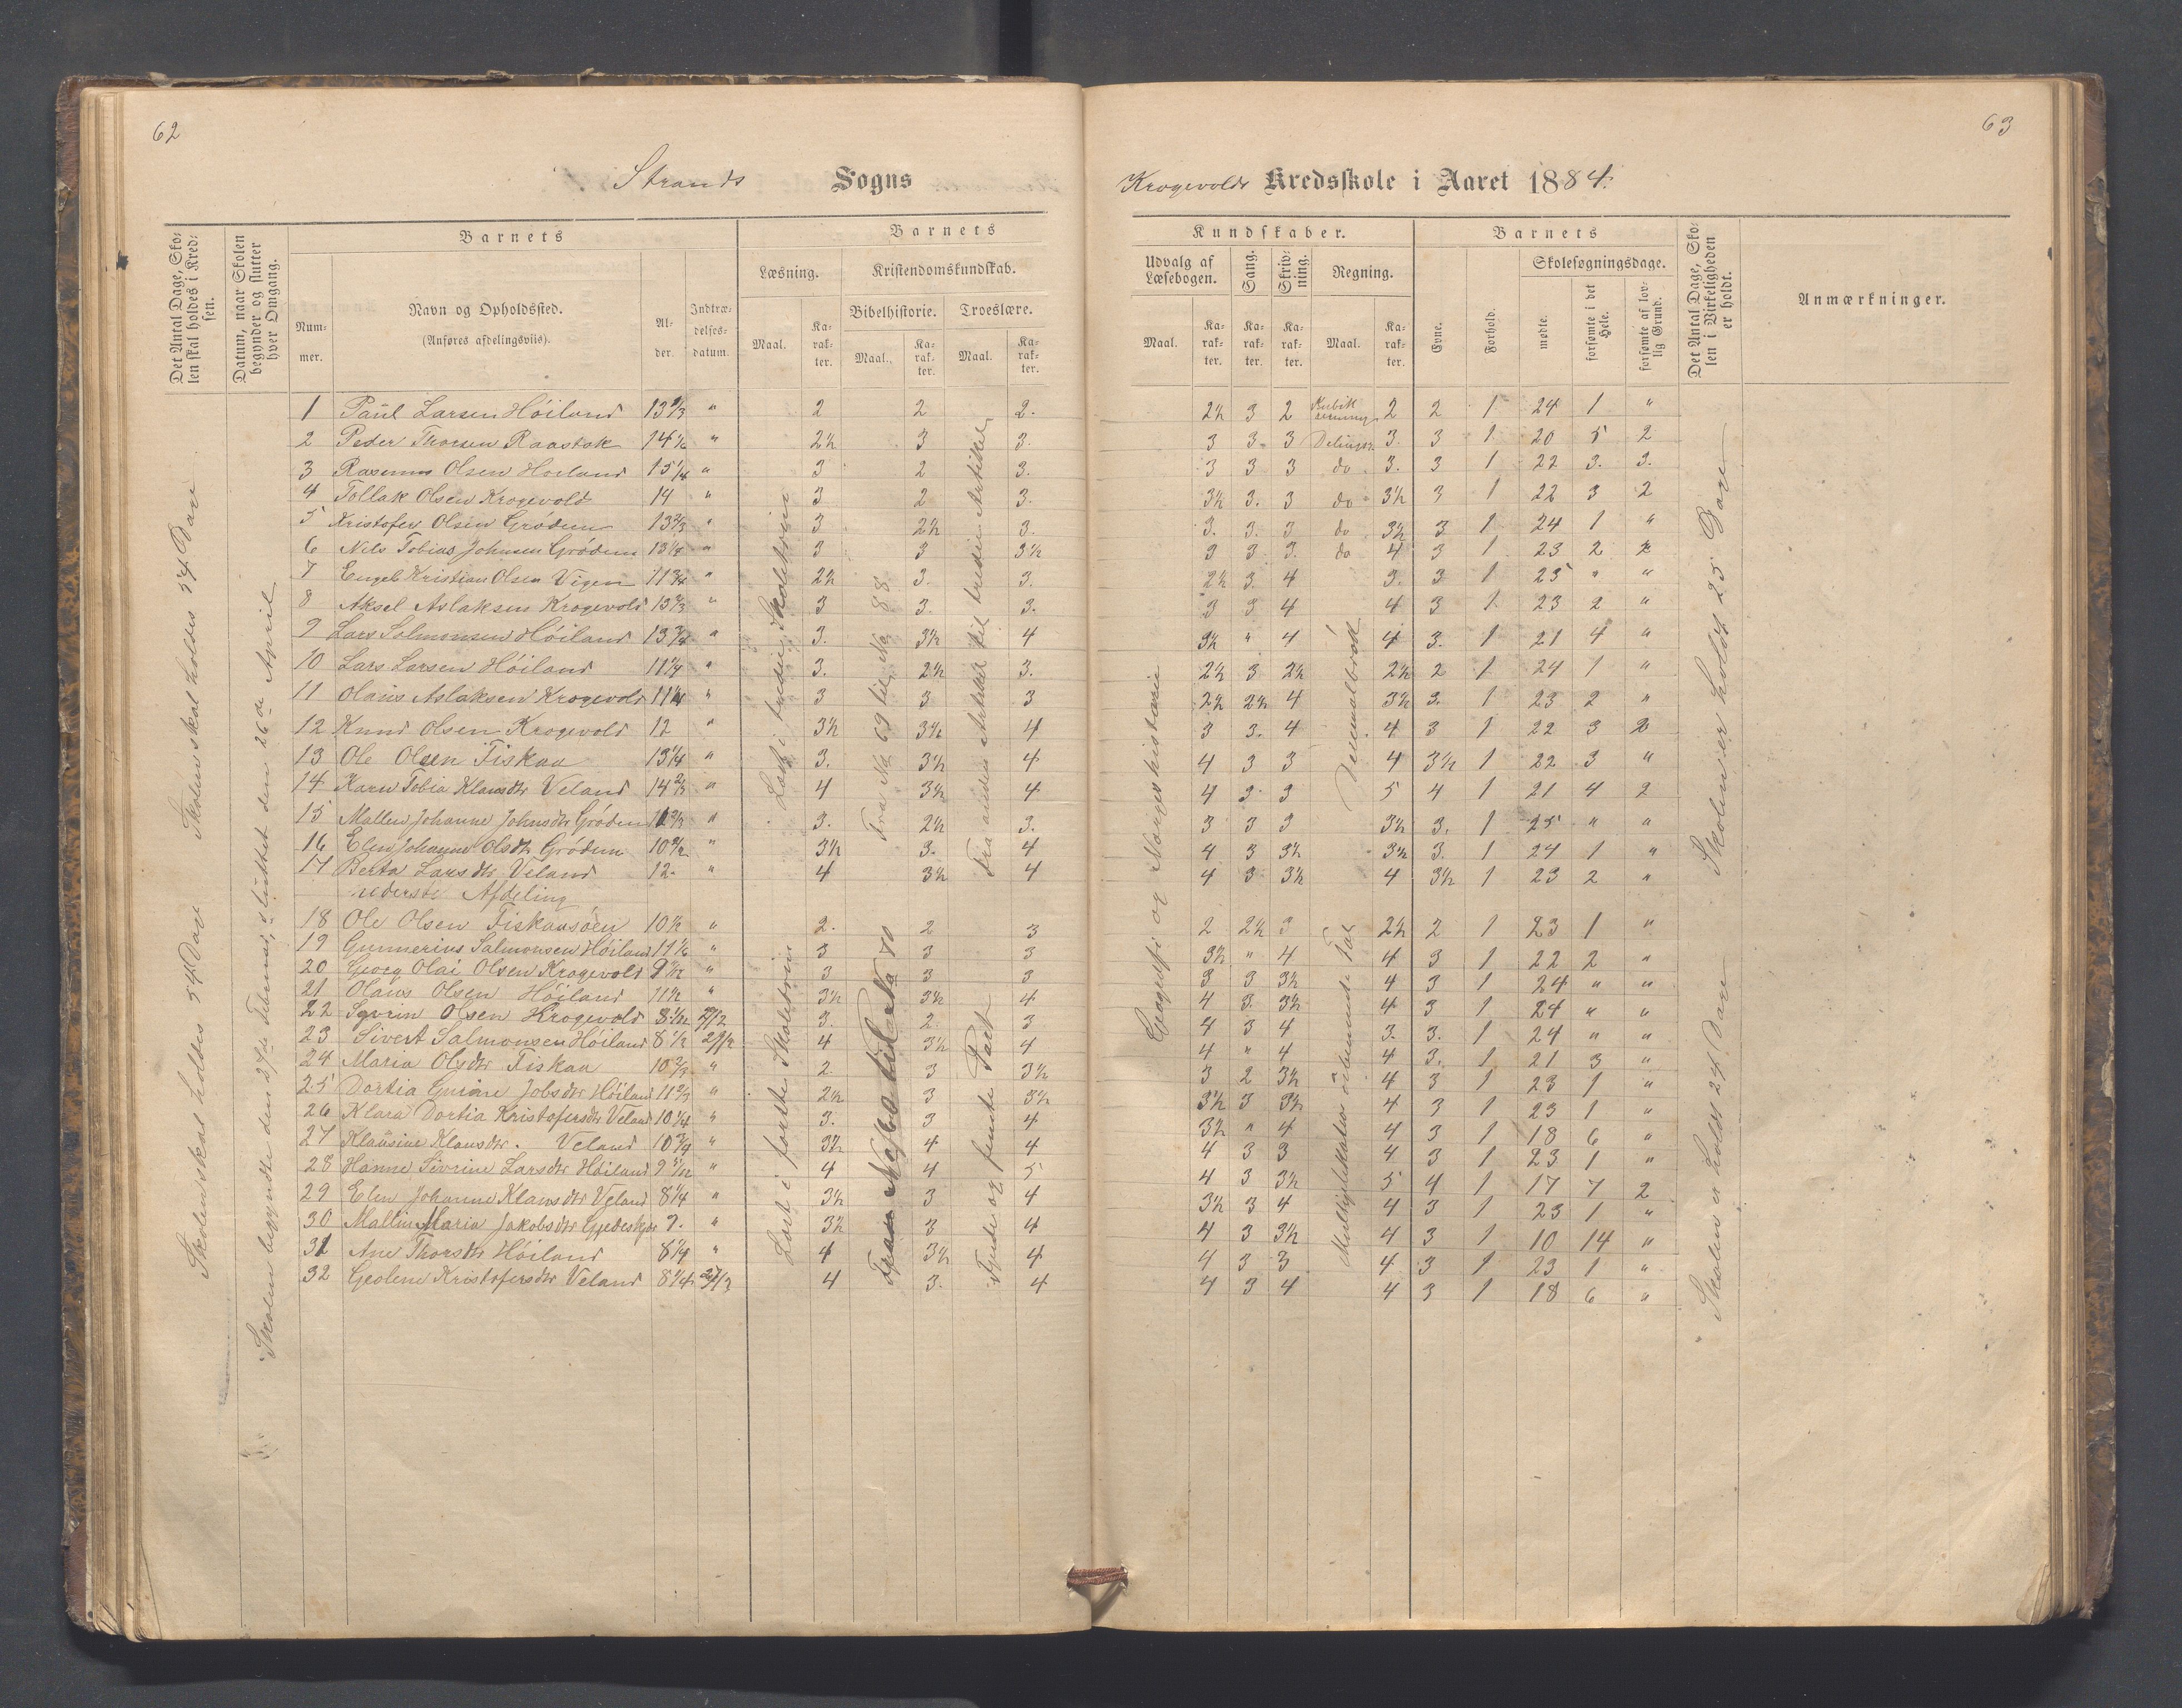 62
63
Strands Sogns
Krogevolds Kredsskole i Aaret 1884.
Det Antal Dage, Skolen skal holdes i Kredsen.
Datum, naar Skolen begynder og slutter hver Omgang.
Barnets
Nummer.
Navn og Opholdssted.
(Anføres afdelingsviis).
Alder.
Indtrædelses-datum.
Barnets
Læsning.
Kristendomskundskab.
Bibelhistorie. Troeslære.
Maal. Karakter. Maal. Karakter. Maal. Karakter.
Kundskaber.
Udvalg af Læsebogen.
Sang.
Skrivning.
Regning.
Maal. Karakter. Karakter. Karakter. Maal. Karakter.
Barnets
Evne.
Forhold.
Skolesøgningsdage.
mødte.
forsømte i det Hele.
forsømte af lovlig Grund.
Det Antal Dage, Skolen i Virkeligheden er holdt.
Anmærkninger.
Skolen skal holdes 54 Dage
Skolen skal holdes 54 Dage
Skolen begyndte den 2den Februar, sluttet den 26de April
Læst i tredie Skoletrin
Fra No 69 til No 88
Fra anden Artikkel til tredie Artikkel
Geografi og Norgeshistorie
Decimalbrøk
Skolen er holdt 25 Dage
1 Paul Larsen Høiland 13 2/3 " 2 2 2. 2½ 3 2 Kubikregning 2 2 1 24 1 "
2 Peder Thorsen Raastok 14 ½ " 2½ 3 3. 3 3 3 3. 3 1 20 5 2
3 Rasmus Olsen Høiland 15 ¼ " 3 2 3. 3 3 3 do 3. 3 1 22 3. 3.
4 Tollak Olsen Krogevold 14 " 3 2 3. 3½ 3. 3 do 3½ 3 1 22 3 2
5 Kristofer Olsen Grødem 13 2/3 " 3 2½ 3. 3. 3. 3 do 3½ 3 1 24 1 "
6 Nils Tobias Johnsen Grødem 13 ¼ " 3 3 3½ 3 3 3. do 4 3 1 23 2 2
7 Engel Kristian Olsen Vigen 11 ¾ " 2½ 3. 3. 2½ 3 4 3. 3 1 25 " "
8 Aksel Aslaksen Krogevold 13 2/3 " 3 3. 3. 3 3 4 4 3 1 23 2 "
9 Lars Salmonsen Høiland 13 ¾ " 3. 3½ 4 3½ " 4 4 3. 1 21 4 "
10 Lars Larsen Høiland 11 ¼ " 3. 2½ 3. 2½ 3 2½ 2½ 2 1 24 1 "
11 Olaus Aslaksen Krogevold 11 ¼ " 3 3 3 2½ 2½ 4 3½ 3. 1 23 2 "
12 Knud Olsen Krogevold 12 " 3½ 3½ 4 3 3. 4 4 3 1 22 3 2
13 Ole Olsen Fiskaa 13 ¼ " 3. 3½ 4 4 3 3 4 3½ 1 22 3 "
14 Karn Tobia Klausdtr Veland 14 2/3 " 4 3½ 4 4 3 3 5 4 1 21 4 2
15 Mallen Johanne Johnsdtr Grødem " 3. 2½ 3. 3 3 3 3½ 3. 1 25 " "
16 Elen Johanne Olsdtr Grødem " 3½ 3. 4 4 3 3½ 3½ 3. 1 24 1 "
17 Berta Larsdtr Veland 12. " 4 3½ 4 4 3 3½ 4 3½ 1 23 2 "
nederste Afdeling
Læst i første Skoletrin
Fra No 60 til No 70
Fjerde og femte Part
Multiplikation ubenævnte Tal
Skolen er holdt 24 Dage
18 Ole Olsen Fiskaasøen 10 ½ " 2. 2 3 2 2½ 3 2½ 2 1 23 1 "
19 Gunnerius Salmonsen Høiland " 3 3 3 3½ " 4 4 3 1 22 2 "
20 Georg Olai Olsen Krogevold " 3 3 3 3 3 3½ 4 3 1 24 " "
21 Olaus Olsen Høiland 11 ½ " 3½ 3½ 4 4 3. 3½ 4 3 1 24 " "
22 Sevrin Olsen Krogevold 3. 2. 3 4 3 4 3. 3. 1 24 " "
23 Sivert Salmonsen Høiland 8 ½ 4 3½ 4 4 " 4 4 3. 1 21 3 "
24 Maria Olsdtr Fiskaa " 2. 3 3½ 3 2 3½ 4 3 1 23 1 "
25 Dortia Gurine Jobsdtr Høiland " 2½ 3 3½ 3½ 3 3½ 4 3 1 23 1 "
26 Klara Dortia Kristofersdtr Veland 10 ¼ " 3. 3 4 3½ " 4 4 3 1 18 6 "
27 Klausine Klausdtr. Veland 10 ¾ " 3½ 4 4 4 3 3 4 3 1 23 1 "
28 Hanne Sivrine Larsdtr Høiland " 4 4 5 4 3 3½ 5 4 1 17 7 2
29 Elen Johanne Klausdtr Veland 8 ¼ " 3½ 3 4 3½ 3 4 4 3 1 23 1 "
30 Mallin Maria Jakobsdtr 9. " 3½ 3 4 4 3 3½ 4 3 1 10 14 "
31 Ane Thorsdtr Høiland 8 ¼ " 4 3½ 4 4 3 3 4 3 1 23 1 "
32 Geoline Kristofersdtr Veland 8 ¼ 4 3. 4 4 3 4 4 3 1 18 6 "